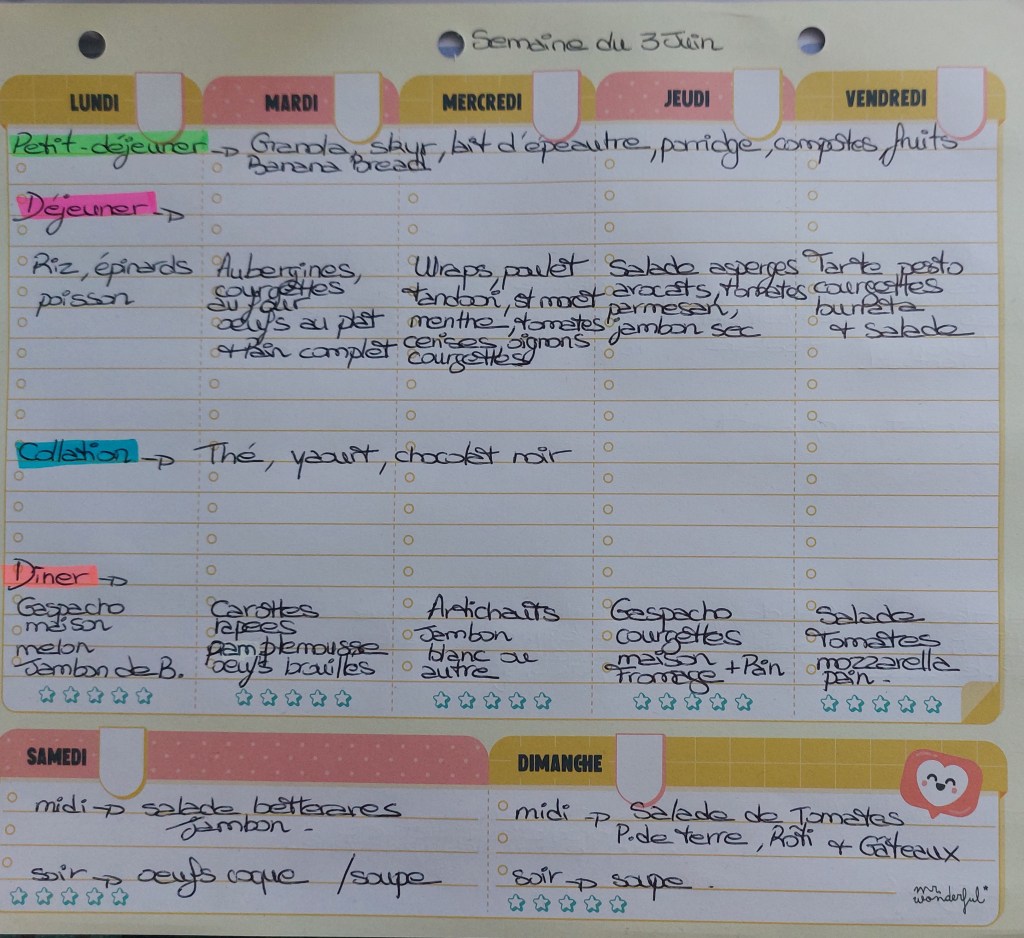 Semaine du 3 Juin
LUNDI
MARDI
MERCREDI
JEUDI
VENDREDI
Petit-déjeuner → Granola, skyr, lait d'épeautre, porridge, compotes, fruits
Banana Bread
Déjeuner →
Riz, épinards
poisson
Aubergines,
courgettes
au four
oeufs au plat
+ Pain complet
Wraps, poulet
tandoori, st moret
menthe, tomates
cerises, oignons
courgettes
Salade asperges
avocats, tomates
parmesan,
jambon sec
Tarte pesto
courgettes
burrata
+ salade
Collation → Thé, yaourt, chocolat noir
Dîner →
Gaspacho
maison
melon
Jambon de B.
Carottes
rapées
pamplemousse
oeufs brouillés
Artichauts
Jambon
blanc ou
autre
Gaspacho
courgettes
maison
fromage + Pain
Salade
Tomates
mozzarella
pain.
SAMEDI
midi → salade betteraves
Jambon.
soir → oeufs coque / soupe
DIMANCHE
midi → Salade de Tomates
P. de terre, Rôti + Gâteaux
soir → soupe.
mr
wonderful*